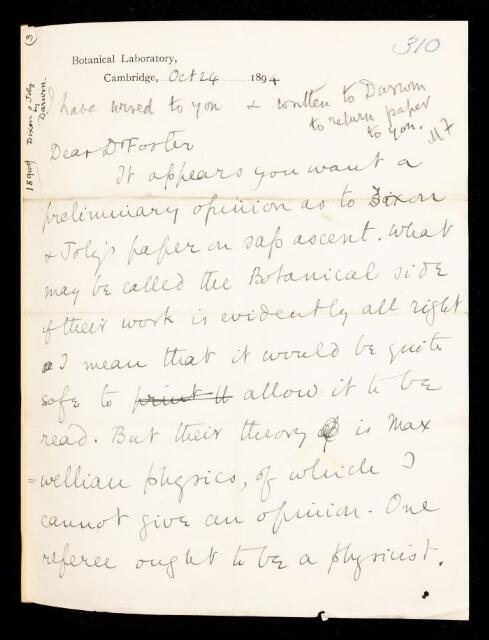 (3)
310
Botanical Laboratory,
Cambridge, Oct 24 1894
Dixon & Joly
by
Darwin.
have wired to you & written to Darwin
to return paper
to you. MF
Dear Dr Foster
It appears you want a
preliminary opinion as to Dixon
& Joly's paper on sap ascent. What
may be called the Botanical side
of their work is evidently all right
I mean that it would be quite
safe to print it allow it to be
read. But their theory is Max
=wellian physics, of which I
cannot give an opinion. One
referee ought to be a physicist.